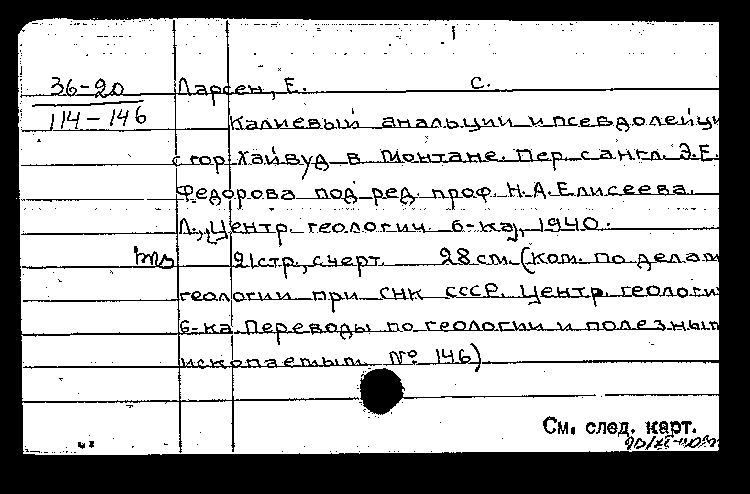 36-20 Ларсен, Е. С.
114-146 Калиевый анальции и псевдолейци
с гор Хайвуд в Монтане. Пер. с англ. Э.Е.
Федорова под ред. проф. Н.А.Елисеева.
Л., Центр. геологич. б-ка, 1940.
21стр., с черт. 28 см. (Ком. по делам
геологии при СНК СССР. Центр. геологи
б-ка. Переводы по геологии и полезным
ископаемым № 146)
См. след. карт.